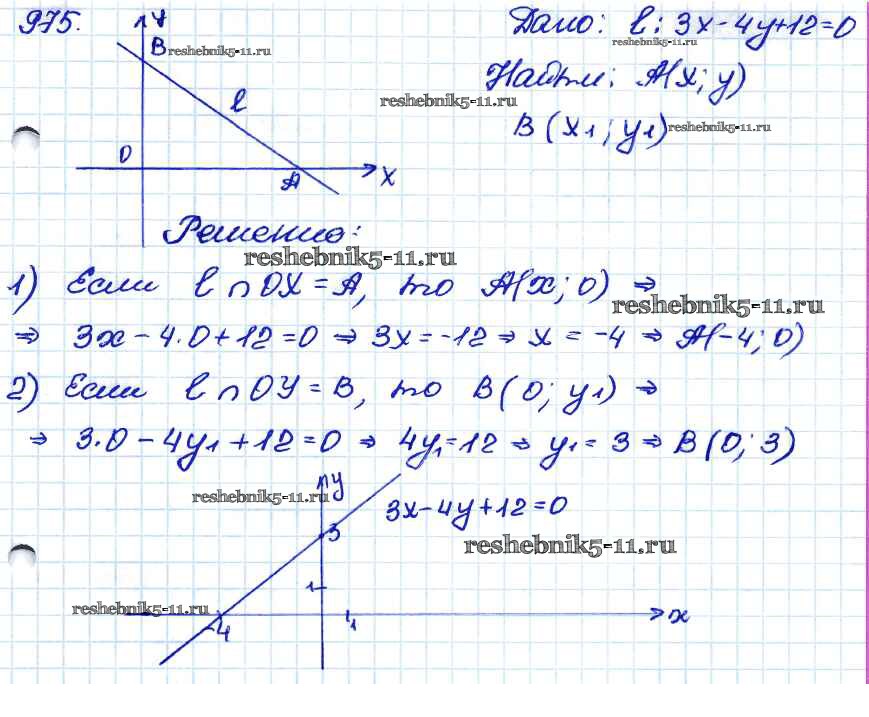 975.
y
B reshebnik5-11.ru
l
O
A
x
Дано: l: 3x-4y+12=0
reshebnik5-11.ru
Найти: A(x; y)
reshebnik5-11.ru
B(x1; y1) reshebnik5-11.ru
Решение:
reshebnik5-11.ru
1) Если l ∩ OX = A, то A(x; 0) ⇒
reshebnik5-11.ru
⇒ 3x - 4·0 + 12 = 0 ⇒ 3x = -12 ⇒ x = -4 ⇒ A(-4; 0)
2) Если l ∩ OY = B, то B(0; y1) ⇒
⇒ 3·0 - 4y1 + 12 = 0 ⇒ 4y1 = 12 ⇒ y1 = 3 ⇒ B(0; 3)
y
reshebnik5-11.ru
3x-4y+12=0
3
reshebnik5-11.ru
1
reshebnik5-11.ru
x
-4
1